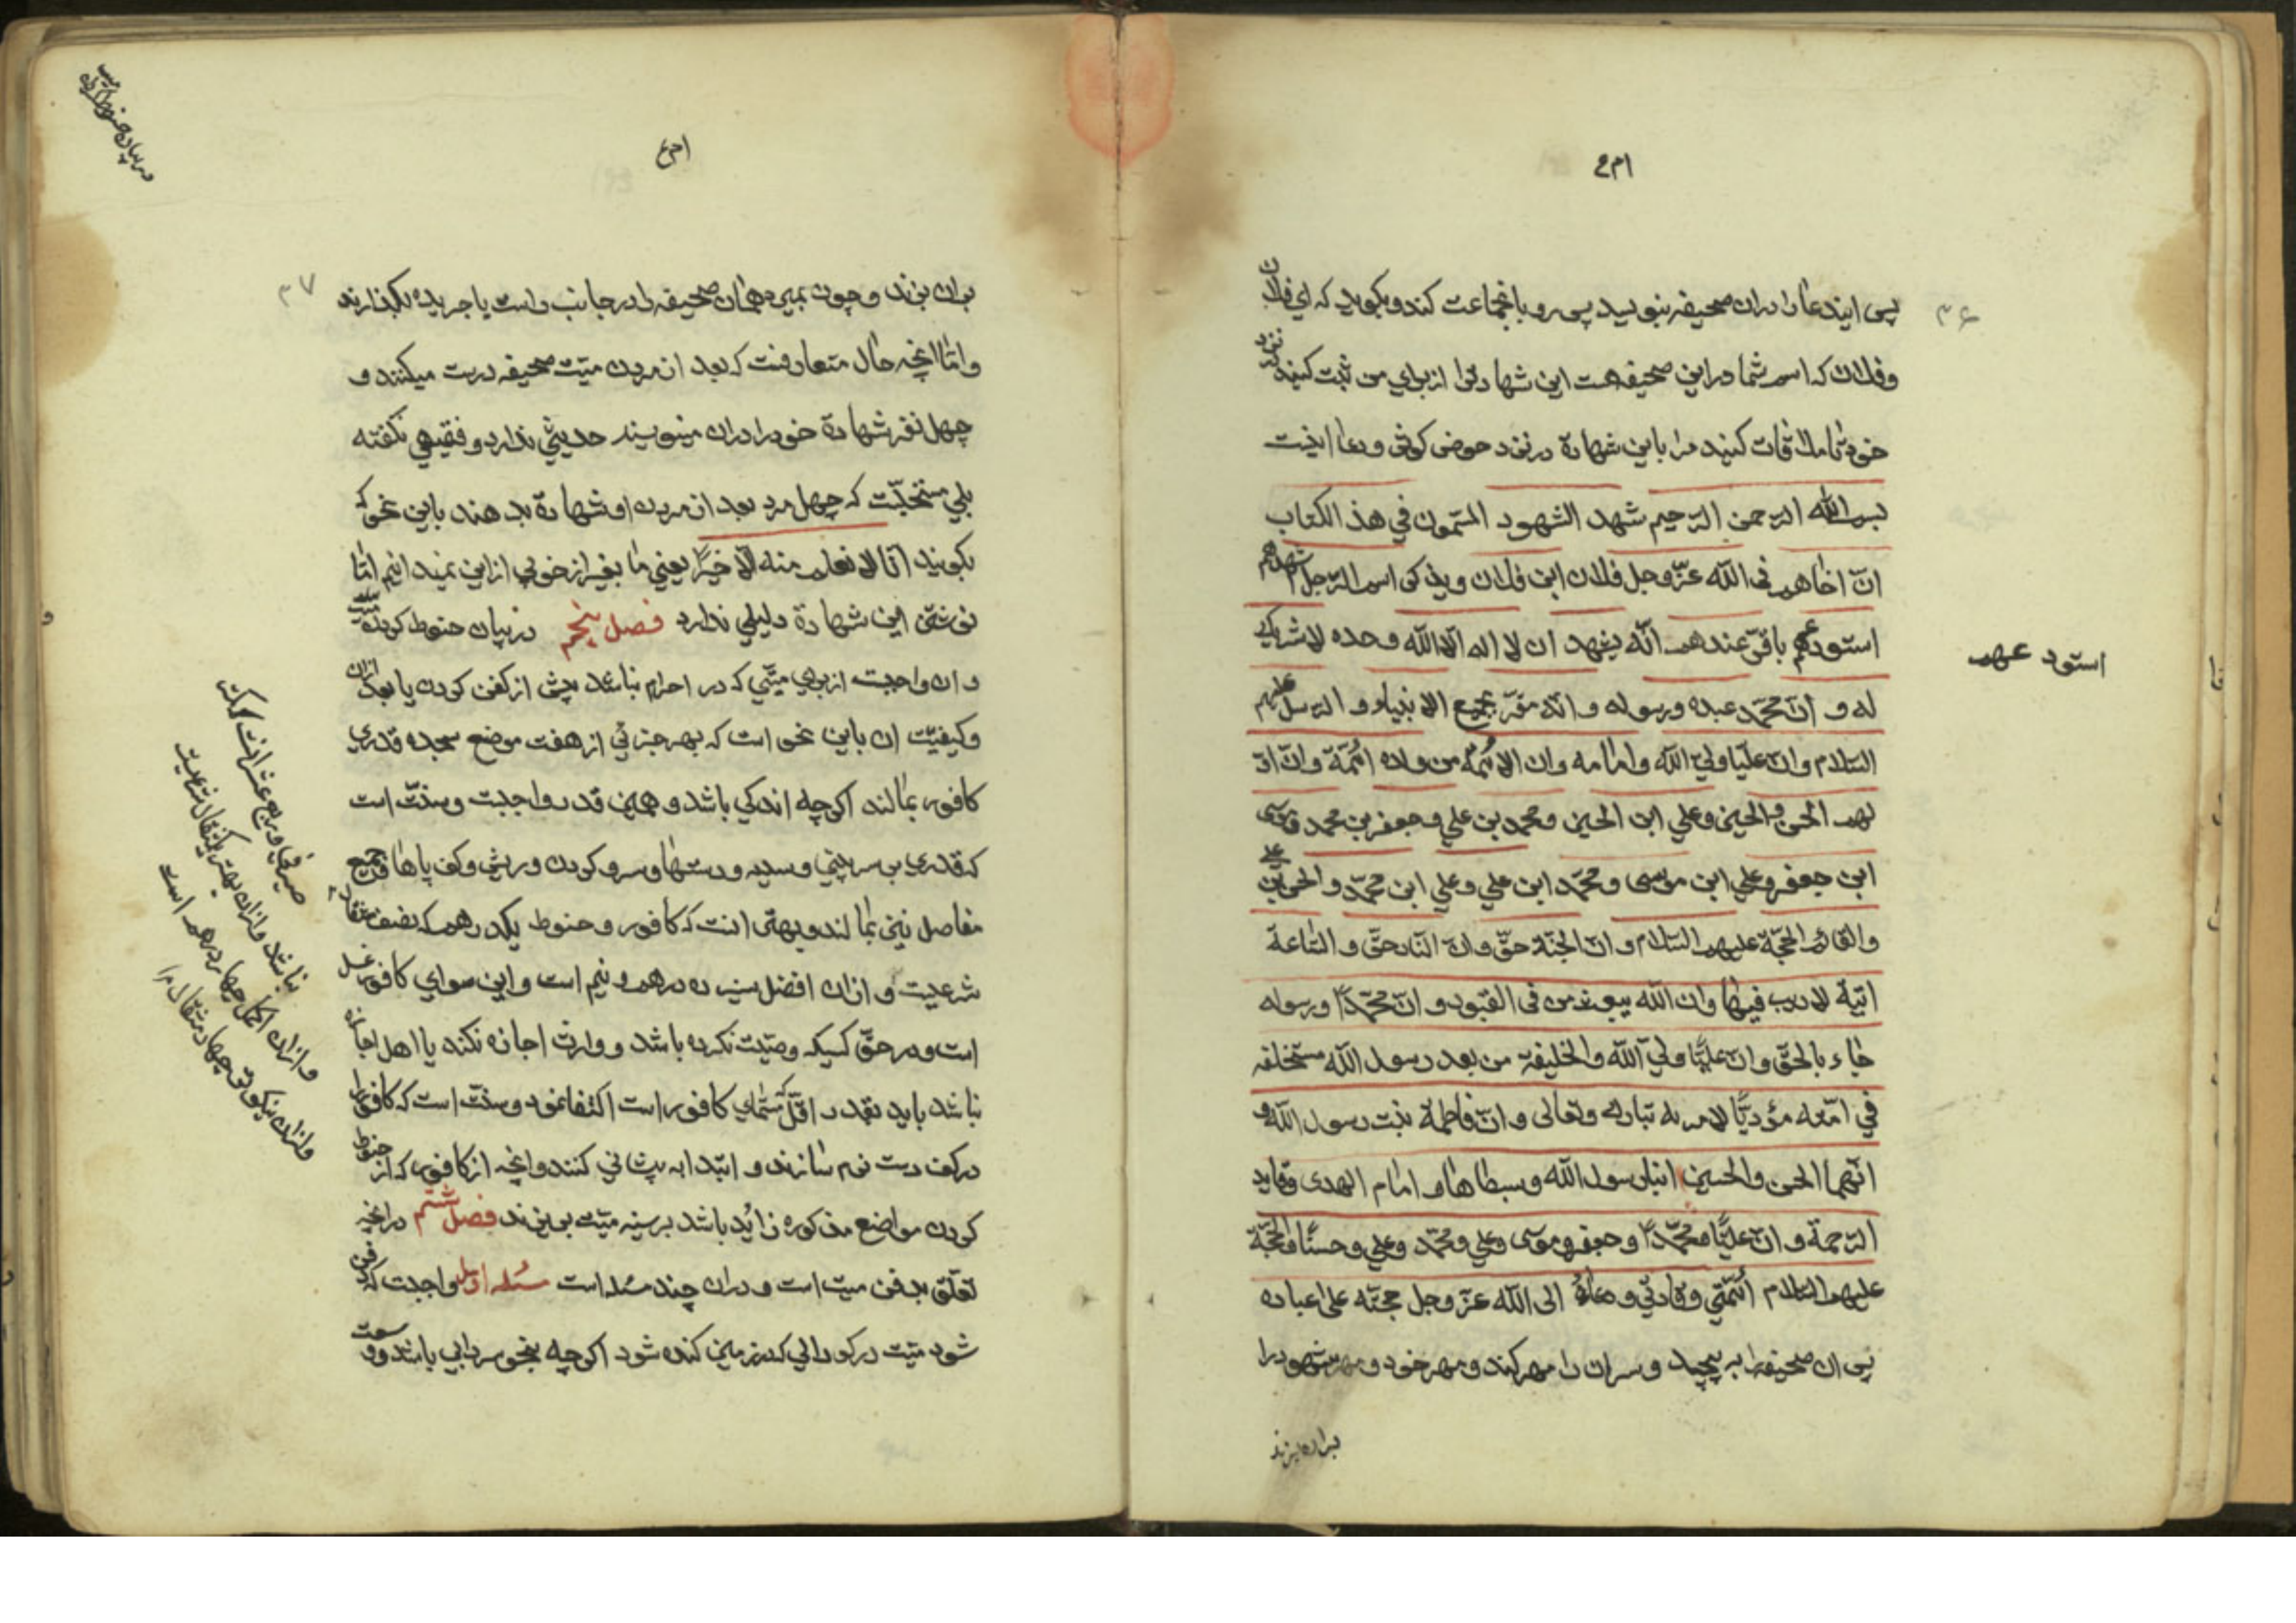 پس ایندعا را دران صحیفه بنویسد پس رو بانجماعت کند و بکوید که ای فلان
وفلان که اسم شما در این صحیفه هست این شهادترا از برای من ثبت کنید نزد
خود تا ملاقات کنید مرا باین شهادة در نزد حوض کوثر ودعا اینست
بسم الله الرحمن الرحیم شهد الشهود المسمون في هذا الکتاب
انّ اخاهم فی الله عزّ وجل فلان ابن فلان ویذکر اسم الرجل اشهدهم
استودعهم باقرّ عندهم انّه یشهد ان لا اله الّا الله وحده لا شریک
له و انّ محمّد عبده ورسوله و انّه مقرّ بجمیع الانبیاء و الرسل علیهم
السّلام وانّ علیّا ولیّ الله وامامه وان الائمّه من ولده ائمّة وانّ اوّ
لهم الحسن والحسین وعلي ابن الحسین ومحمد بن علي وجعفر بن محمد وموسی
ابن جعفر وعلي ابن موسی ومحمّد ابن علي وعلي ابن محمّد والحسن بن علي
والقائم الحجّة علیهم السّلام و انّ الجنّة حقّ وانّ النّار حقّ و السّاعة
اتیة لا ریب فیها وان الله یبعث من فی القبور و انّ محمّدا ورسوله
جاء بالحقّ وانّ علیّا وليّ الله والخلیفه من بعد رسول الله مستخلفه
في امّته مؤدیّا لامر به تبارک وتعالی و انّ فاطمة بنت رسول الله و
انّهما الحسن والحسین ابنا رسول الله وسبطاها و اماما الهدی وقاید
الرّحمة و انّ علیّا ومحمّدا وجعفر وموسی وعلي ومحمّد وعلي وحسنًا والحجّة
علیهم السّلام أئمّتي وقادتي ودعاة الی الله عزّ وجل حجته علی عباده
پس ان صحیفه را به پیچید وسران را مهر کند ومهر خود ومهر شهود را
بران بزند
استود عهم
بران بزند و چون بمیرد همان صحیفه را در جانب راست یا جریده بکذارند
وامّا انچه حال متعارفست که بعد از مردن میّت صحیفه درست میکنند و
چهل نفر شهادة خود را دران مینویسند حدیثي ندارد و فقیهي نکفته
بلي مستحبّست که چهل مرد بعد از مردن او شهادة بدهند باین نحو که
بکویند انّا لا نعلم منه الّا خیرًا یعني ما بغیر از خوبي از این نمیدانیم امّا
نوشتن این شهادة دلیلي ندارد فصل پنجم در بیان حنوط کردن میّت
و ان واجبست از برای میّتي که در احرام نباشد پیش از کفن کردن یا بعد ازان
وکیفیّت ان باین نحو است که بهر جزئي از هفت موضع سجده قدري
کافور بمالند اکرچه اندکي باشد و همین قدر واجبست وسنّت است
که قدري بر سر بیني وسینه ودستها وسر و کردن وریش وکف پاها وجمیع
مفاصل نیز بمالند و بهتر انست که کافور و حنوط یکدرهم که نصف مثقال
شرعیست و ازان افضل سیزده درهم و نیم است و این سوای کافور غسل
است و در حقّ کسیکه وصیّت نکرده باشد و وارث اجازه نکند یا اهل اجازه
نباشد باید بقدر اقلّ که مسمّاي کافور است اکتفا نمود وسنّت است که کافور را
در کف دست نرم سازند و ابتدا به پیشاني کنند وانچه از کافور که از حنوط
کردن مواضع مذکوره زائید باشد بر سینه میّت بریزند فصل ششم در انچه
تعلّق بدفن میّت است و دران چند مسئله است مسئله اوّل واجبست که دفن
شود میّت در کودالي که در زمین کنده شود اکرچه بنحو سردابي باشد و وسعت